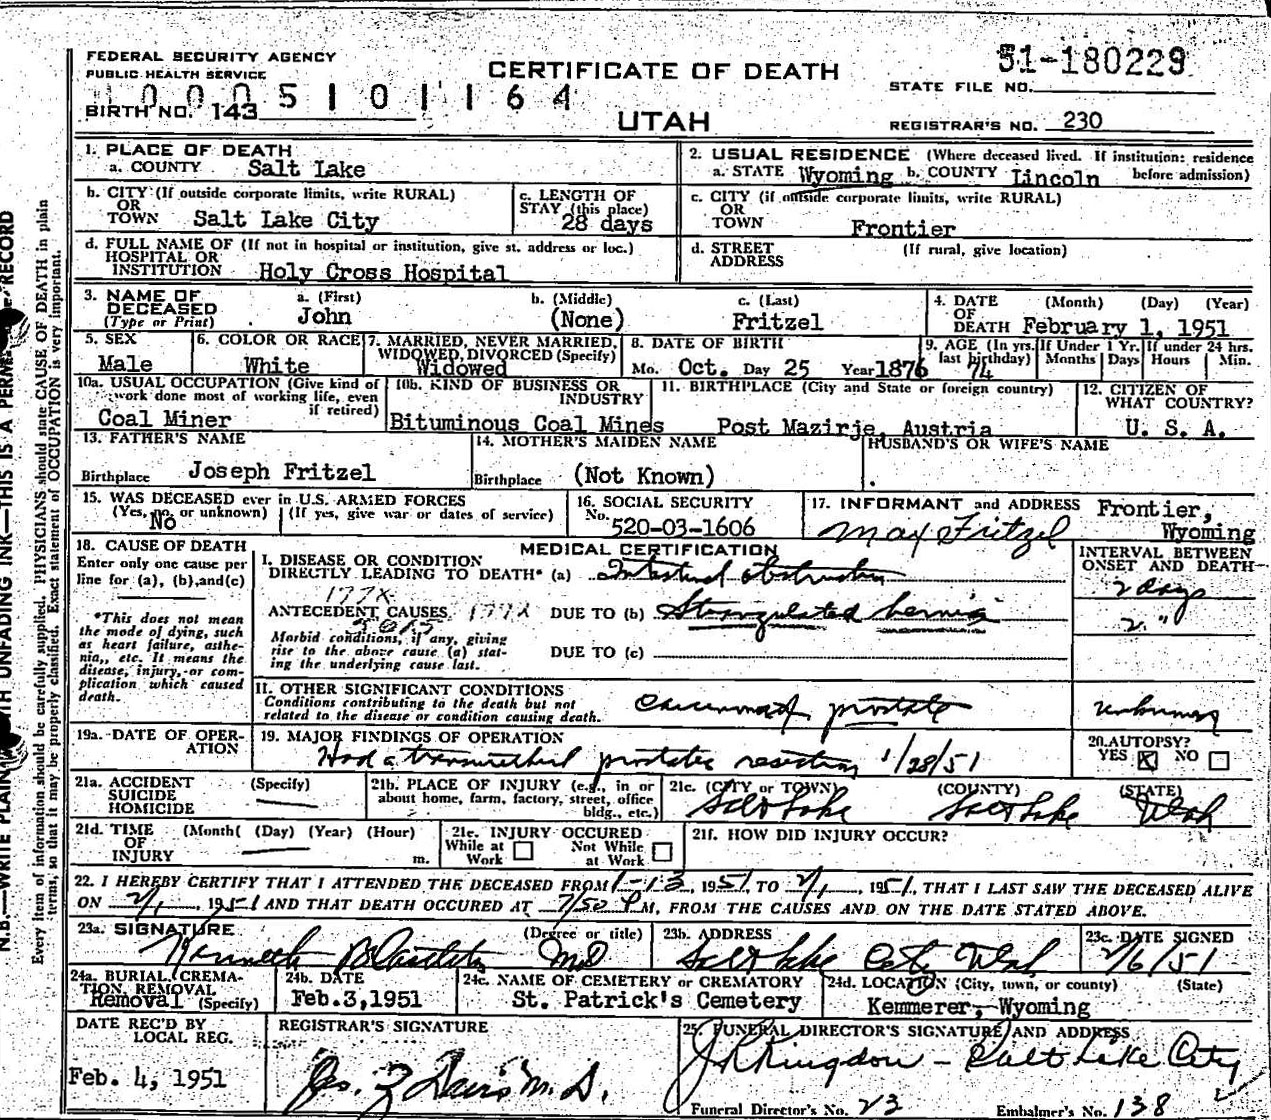 FEDERAL SECURITY AGENCY
PUBLIC HEALTH SERVICE
CERTIFICATE OF DEATH
51-180229
STATE FILE NO.
0005101164
BIRTH NO. 143
UTAH
REGISTRAR'S NO. 230
1. PLACE OF DEATH
a. COUNTY Salt Lake
2. USUAL RESIDENCE (Where deceased lived. If institution: residence before admission)
a. STATE Wyoming b. COUNTY Lincoln
b. CITY (If outside corporate limits, write RURAL)
OR
TOWN Salt Lake City
c. LENGTH OF
STAY (this place)
28 days
c. CITY (if outside corporate limits, write RURAL)
OR
TOWN Frontier
d. FULL NAME OF (If not in hospital or institution, give st. address or loc.)
HOSPITAL OR
INSTITUTION Holy Cross Hospital
d. STREET (If rural, give location)
ADDRESS
3. NAME OF
DECEASED
(Type or Print)
a. (First)
John
b. (Middle)
(None)
c. (Last)
Fritzel
4. DATE (Month) (Day) (Year)
OF
DEATH February 1, 1951
5. SEX
Male
6. COLOR OR RACE
White
7. MARRIED, NEVER MARRIED,
WIDOWED, DIVORCED (Specify)
Widowed
8. DATE OF BIRTH
Mo. Oct. Day 25 Year 1876
9. AGE (In yrs.
last birthday)
74
If Under 1 Yr.
Months Days
If under 24 hrs.
Hours Min.
10a. USUAL OCCUPATION (Give kind of
work done most of working life, even
if retired)
Coal Miner
10b. KIND OF BUSINESS OR
INDUSTRY
Bituminous Coal Mines
11. BIRTHPLACE (City and State or foreign country)
Post Mazirje, Austria
12. CITIZEN OF
WHAT COUNTRY?
U. S. A.
13. FATHER'S NAME
Birthplace Joseph Fritzel
14. MOTHER'S MAIDEN NAME
Birthplace (Not Known)
HUSBAND'S OR WIFE'S NAME
15. WAS DECEASED ever in U.S. ARMED FORCES
(Yes, no or unknown) (If yes, give war or dates of service)
No
16. SOCIAL SECURITY
No. 520-03-1606
17. INFORMANT and ADDRESS Frontier,
Max Fritzel Wyoming
18. CAUSE OF DEATH
Enter only one cause per
line for (a), (b), and (c)
*This does not mean
the mode of dying, such
as heart failure, asthe-
nia, etc. It means the
disease, injury, or com-
plication which caused
death.
MEDICAL CERTIFICATION
INTERVAL BETWEEN
ONSET AND DEATH
I. DISEASE OR CONDITION
DIRECTLY LEADING TO DEATH* (a) Intestinal obstruction
2 days
177X
ANTECEDENT CAUSES 177X DUE TO (b) Strangulated hernia
2 "
Morbid conditions, if any, giving
rise to the above cause (a) stat-
ing the underlying cause last.
DUE TO (c)
II. OTHER SIGNIFICANT CONDITIONS
Conditions contributing to the death but not
related to the disease or condition causing death.
Carcinoma of prostate
unknown
19a. DATE OF OPER-
ATION
19. MAJOR FINDINGS OF OPERATION
Had a transurethral prostatic resection 1/28/51
20. AUTOPSY?
YES X NO
21a. ACCIDENT (Specify)
SUICIDE
HOMICIDE
21b. PLACE OF INJURY (e.g., in or
about home, farm, factory, street, office
bldg., etc.)
21c. (CITY or TOWN) (COUNTY) (STATE)
Salt Lake Salt Lake Utah
21d. TIME (Month) (Day) (Year) (Hour)
OF
INJURY m.
21e. INJURY OCCURED
While at Work Not While at Work
21f. HOW DID INJURY OCCUR?
22. I HEREBY CERTIFY THAT I ATTENDED THE DECEASED FROM 1-13, 1951, TO 2/1, 1951, THAT I LAST SAW THE DECEASED ALIVE
ON 2/1, 1951 AND THAT DEATH OCCURED AT 7/50 P M, FROM THE CAUSES AND ON THE DATE STATED ABOVE.
23a. SIGNATURE (Degree or title)
Kenneth B MD
23b. ADDRESS
Salt Lake City Utah
23c. DATE SIGNED
2/6/51
24a. BURIAL, CREMA-
TION, REMOVAL
Removal (Specify)
24b. DATE
Feb.3,1951
24c. NAME OF CEMETERY or CREMATORY
St. Patrick's Cemetery
24d. LOCATION (City, town, or county) (State)
Kemmerer, Wyoming
DATE REC'D BY
LOCAL REG.
Feb. 4, 1951
REGISTRAR'S SIGNATURE
M.D.
25. FUNERAL DIRECTOR'S SIGNATURE AND ADDRESS
J R Kingdon - Salt Lake City
Funeral Director's No. 23 Embalmer's No. 138
Every item of information should be carefully supplied. PHYSICIANS should state CAUSE OF DEATH in plain
terms, so that it may be properly classified. Exact statement of OCCUPATION is very important.